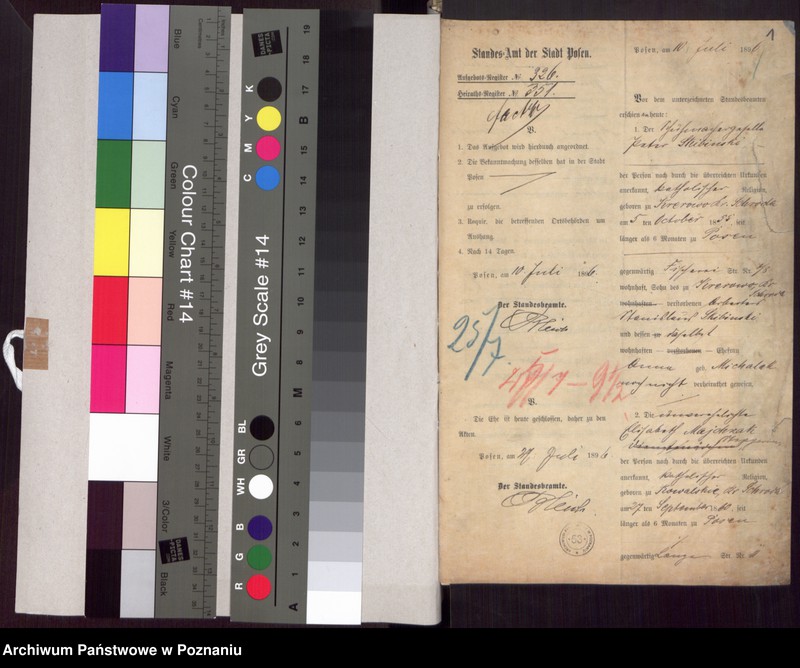 Blue
Cyan
Green
Yellow
Red
Magenta
White
3/Color
Black
Colour Chart #14
Inches
Centimetres
DANES
PICTA
Grey Scale #14
DANES
PICTA
C M Y K
R G B
WH GR BL
A 1 2 3 4 5 6 M 8 9 10 11 12 13 14 15 B 17 18 19
1
Standes-Amt der Stadt Posen.
Aufgebots-Register № 326.
Heiraths-Register № 351.
V.
1. Das Aufgebot wird hierdurch angeordnet.
2. Die Bekanntmachung desselben hat in der Stadt
Posen
zu erfolgen.
3. Requir. die betreffenden Ortsbehörden um
Aushang.
4. Nach 14 Tagen.
Posen, am 10 Juli 1886.
Der Standesbeamte.
25/7.
V.
Die Ehe ist heute geschlossen, daher zu den
Akten.
Posen, am 29 Juli 1886.
Der Standesbeamte.
63
Posen, am 10 Juli 1886
Vor dem unterzeichneten Standesbeamten
erschienen heute:
1. Der Schuhmachergeselle
Peter Skibinski
der Person nach durch die überreichten Urkunden
anerkannt, katholischer Religion,
geboren zu
am 5 ten October 18 seit
länger als 6 Monaten zu Posen
gegenwärtig Fischerei Str. Nr.
wohnhaft. Sohn des zu
wohnhaften verstorbenen Arbeiters
Skibinski
und dessen daselbst
wohnhaften verstorbenen Ehefrau
Anna geb. Michalak
noch nicht verheirathet gewesen,
2. Die unverehelichte
Elisabeth Majchrzak
der Person nach durch die überreichten Urkunden
anerkannt, katholischer Religion,
geboren zu
am 27 ten September 18 seit
länger als 6 Monaten zu Posen
gegenwärtig Lange Str. Nr.
Archiwum Państwowe w Poznaniu